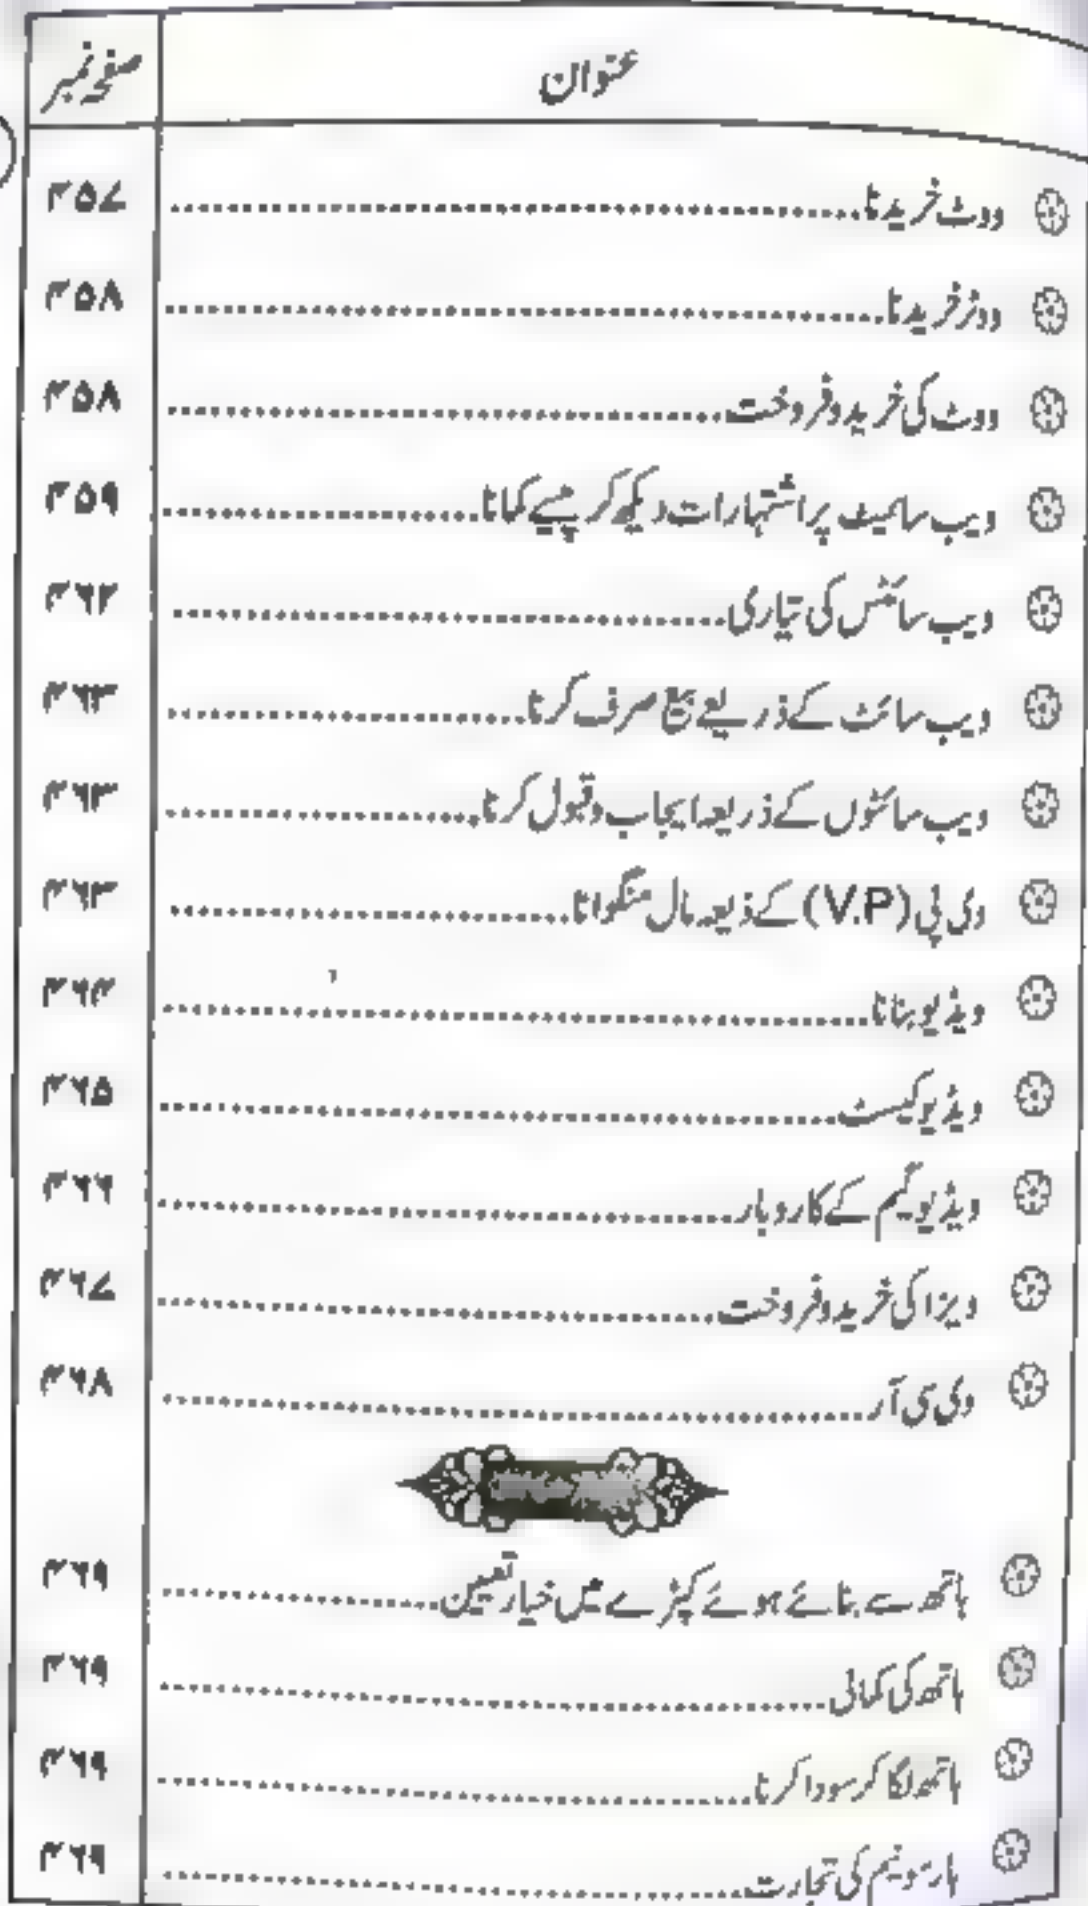 عنوان صفحہ نمبر
ووٹ خریدنا ۴۵۷
ووٹر خریدنا ۴۵۸
ووٹ کی خرید و فروخت ۴۵۸
ویب سائیٹ پر اشتہارات دیکھ کر پیسے کمانا ۴۵۹
ویب سائٹس کی تیاری ۴۶۲
ویب سائٹ کے ذریعے بیع صرف کرنا ۴۶۳
ویب سائٹوں کے ذریعہ ایجاب و قبول کرنا ۴۶۳
وی پی (V.P) کے ذریعہ مال منگوانا ۴۶۳
ویڈیو بنانا ۴۶۴
ویڈیو کیسٹ ۴۶۵
ویڈیو گیم کے کاروبار ۴۶۶
ویزا کی خرید و فروخت ۴۶۷
وی سی آر ۴۶۸
ہاتھ سے بنائے ہوئے کپڑے میں خیار تعیین ۴۶۹
ہاتھ کی کمائی ۴۶۹
ہاتھ لگا کر سودا کرنا ۴۶۹
ہارمونیم کی تجارت ۴۶۹